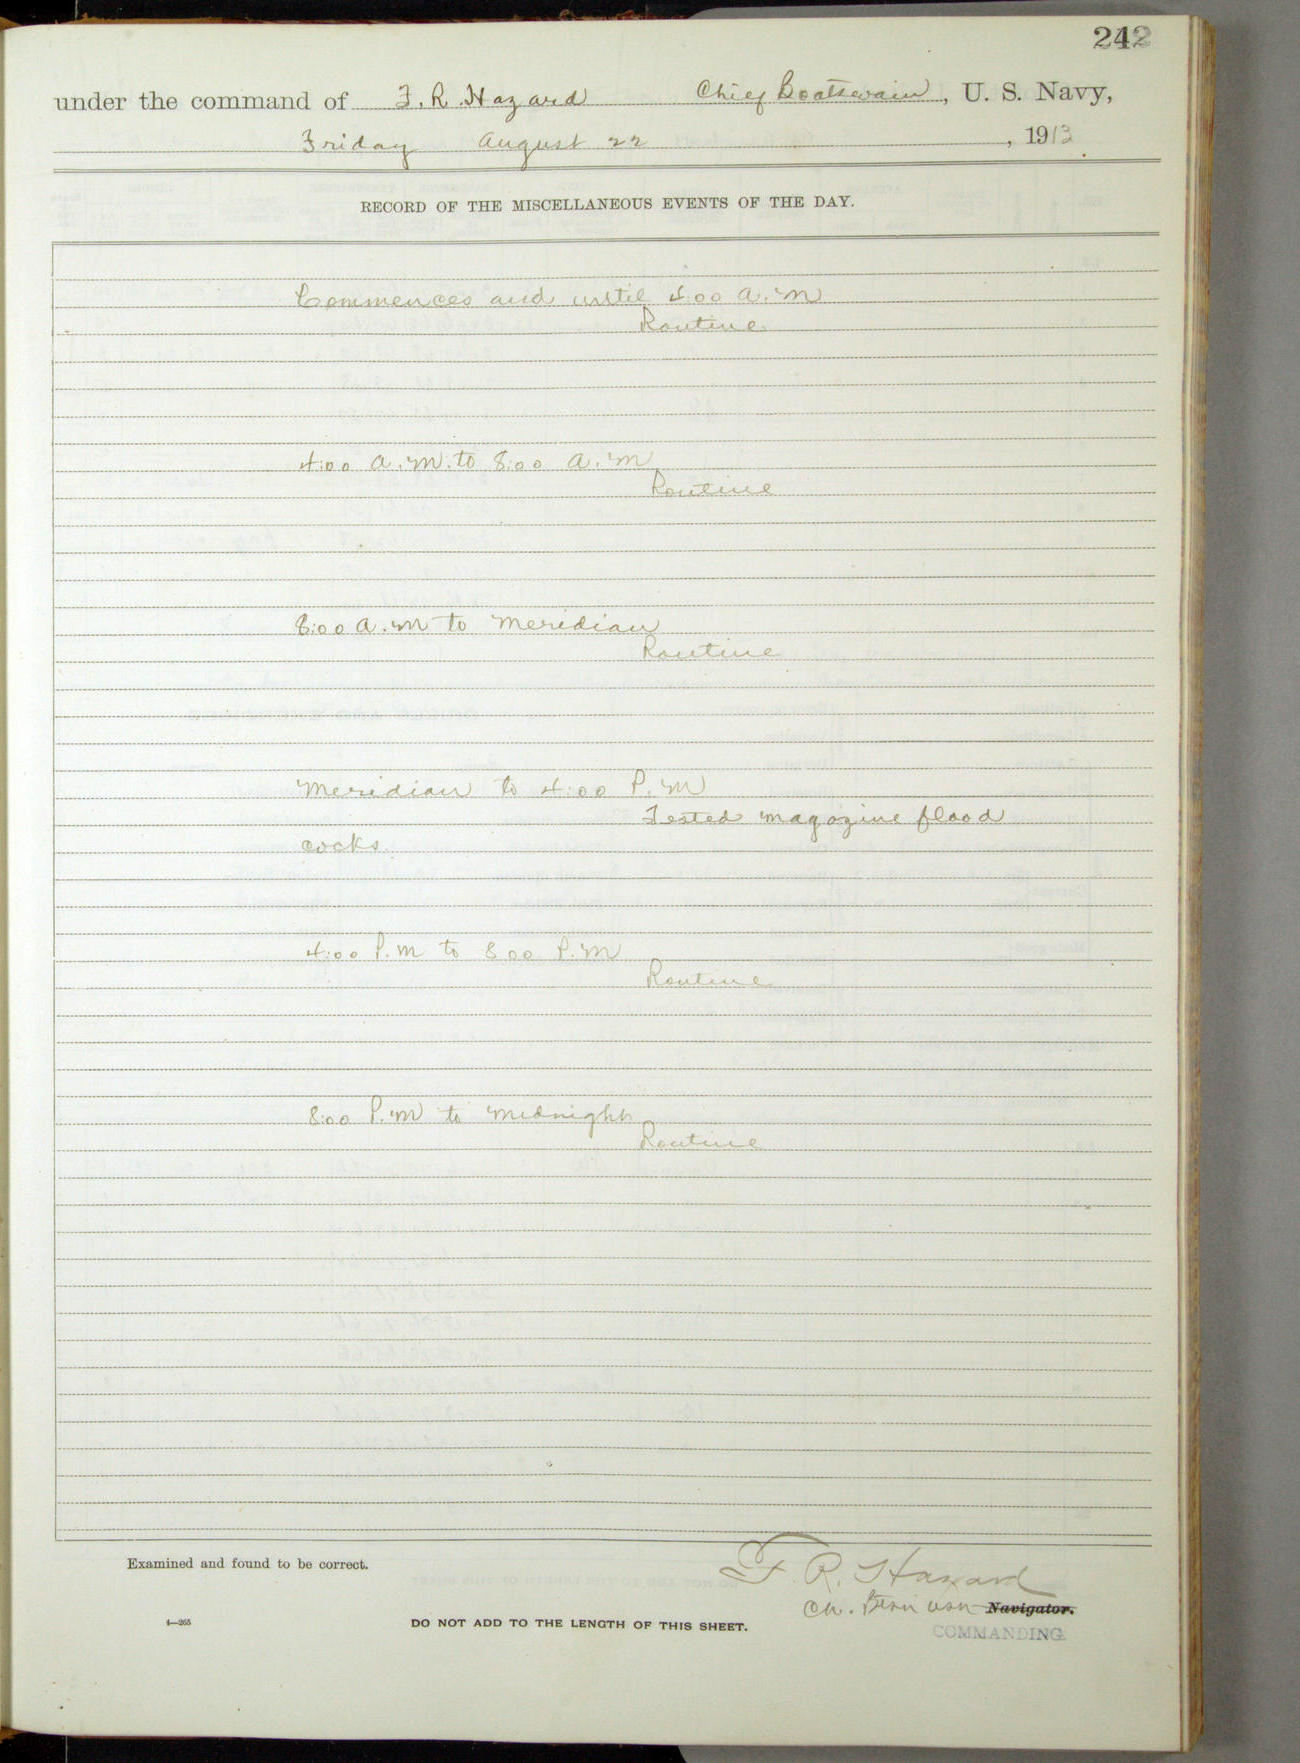 242
under the command of F. R. Hazard Chief Boatswain, U. S. Navy,
Friday August 22, 1913
RECORD OF THE MISCELLANEOUS EVENTS OF THE DAY.
Commences and until 4:00 a.m
Routine
4:00 a.m. to 8:00 a.m
Routine
8:00 a.m to meridian
Routine
Meridian to 4:00 P.m
Tested magazine flood
cocks.
4:00 P.m to 8 00 P.m
Routine
8:00 P.m to midnight
Routine
Examined and found to be correct.
F. R. Hazard
Ch. Navigator.
4—265
DO NOT ADD TO THE LENGTH OF THIS SHEET.
COMMANDING